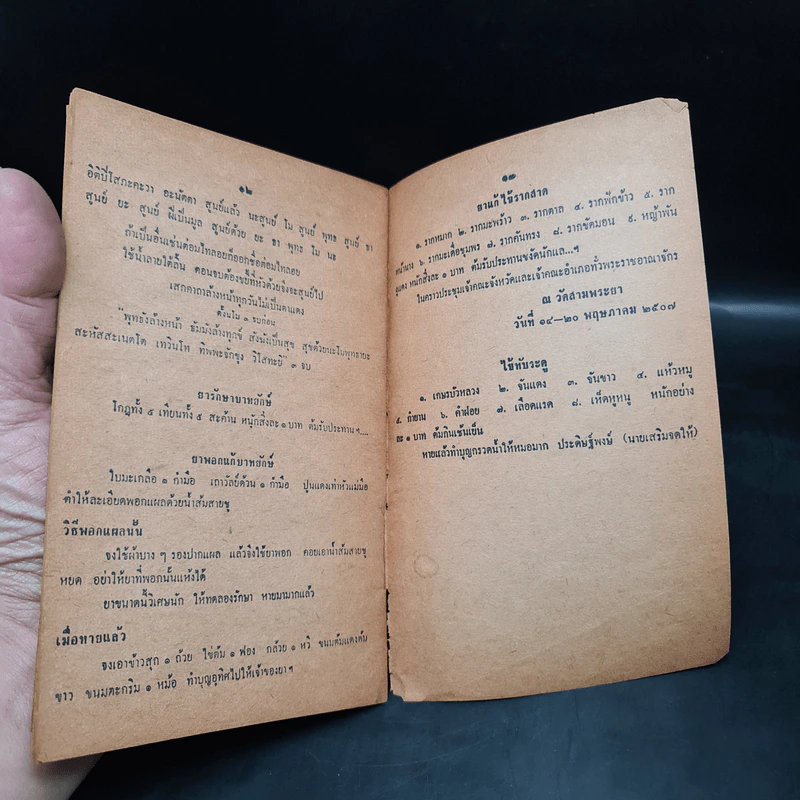 ๑๒
อิติปิโสภะคะวา อะนัตตา สูนย์แล้ว นะสูนย์ โม สูนย์ พุทธ สูนย์ ธา
สูนย์ ยะ สูนย์ ผีเป็นมูล สูนย์ด้วย ยะ ธา พุทธะ โม นะ
ถ้าเป็นอื่นเช่นต่อมไทลอยก็ออกชื่อต่อมไทลอย
ใช้น้ำลายใต้ลิ้น ตอนจบต้องขยี้ที่หัวด้วยจึงจะสูนย์ไป
เสกคาถาล้างหน้าทุกวันไม่เป็นตาแดง
ตั้งนโม ๓ จบก่อน
"พุทธังล้างหน้า ธัมมังล้างทุกข์ สังฆังเป็นสุข สุขด้วยนะโมพุทธายะ
สะหัสสะเนตโต เทวินโท ทิพพะจักขุง วิโสทะยิ" ๓ จบ
ยารักษาบาทยักษ์
โกฎทั้ง ๕ เทียนทั้ง ๕ สะค้าน หนักสิ่งละ ๑ บาท ต้มรับประทาน ฯ....
ยาพอกแก้บาทยักษ์
ใบมะเกลือ ๑ กำมือ เถาวัลย์ด้วน ๑ กำมือ ปูนแดงเท่าหัวแม่มือ
ตำให้ละเอียดพอกแผลด้วยน้ำส้มสายชู
วิธีพอกแผลนั้น
จงใช้ผ้าบาง ๆ รองปากแผล แล้วจึงใช้ยาพอก คอยเอาน้ำส้มสายชู
หยด อย่าให้ยาที่พอกนั้นแห้งได้
ยาขนาดนี้วิเศษนัก ให้ทดลองรักษา หายมามากแล้ว
เมื่อหายแล้ว
จงเอาข้าวสุก ๑ ถ้วย ไข่ต้ม ๑ ฟอง กล้วย ๑ หวี ขนมต้มแดงต้ม
ขาว ขนมตะกริม ๑ หม้อ ทำบุญอุทิศไปให้เจ้าของยา ฯ
๑๓
ยาแก้ไข้รากสาด
๑. รากหมาก ๒. รากมะพร้าว ๓. รากตาล ๔. รากฟักข้าว ๕. ราก
หน้านาง ๖. รากมะเดื่อชุมพร ๗. รากคันทรง ๘. รากขัดมอน ๙. หญ้าพัน
งูแดง หนักสิ่งละ ๑ บาท ต้มรับประทานขงัดนักแล...ฯ
ในคราวประชุมเจ้าคณะจังหวัดและเจ้าคณะอำเภอทั่วพระราชอาณาจักร
ณ วัดสามพระยา
วันที่ ๑๔—๒๐ พฤษภาคม ๒๕๐๗
ไข้ทับระดู
๑. เกษรบัวหลวง ๒. จันแดง ๓. จันขาว ๔. แห้วหมู
๕. กำยาน ๖. คำฝอย ๗. เลือดแรด ๘. เห็ดหูหนู หนักอย่าง
ละ ๑ บาท ต้มกินเช้นเย็น
หายแล้วทำบุญกรวดน้ำให้หมอมาก ประดิษฐ์พงษ์ (นายเสริมจดให้)